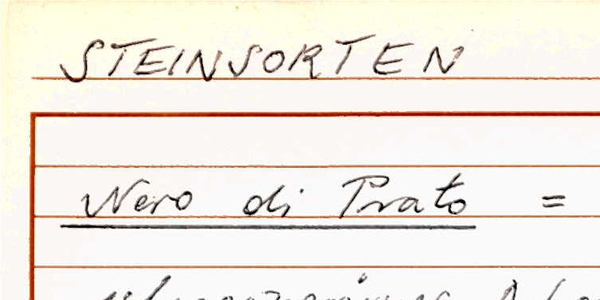 STEINSORTEN
Nero di Prato =